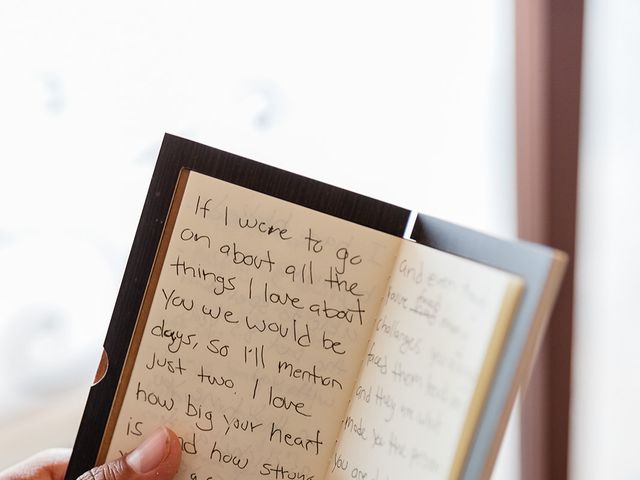 If I were to go
on about all the
things I love about
you we would be
days, so I'll mention
just two. I love
how big your heart
is and how strong
and even
have
challenges
faced them
and they are what
made you the person
you are